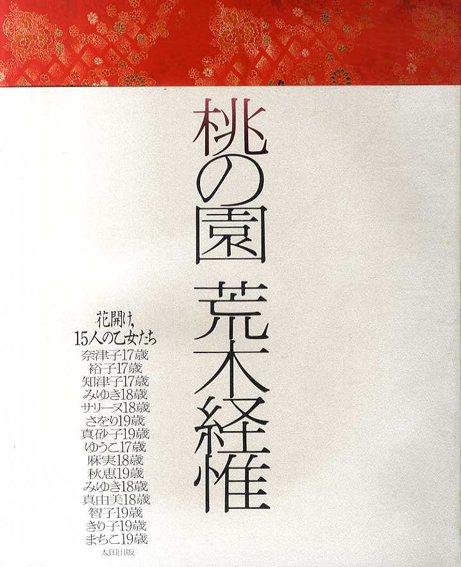 桃の園 荒木経惟
花開け、
15人の乙女たち
奈津子17歳
裕子17歳
知津子17歳
みゆき18歳
サリーヌ18歳
さをり19歳
真砂子19歳
ゆうこ17歳
麻実18歳
秋恵19歳
みゆき18歳
真由美18歳
智子19歳
きり子19歳
まちこ19歳
太田出版